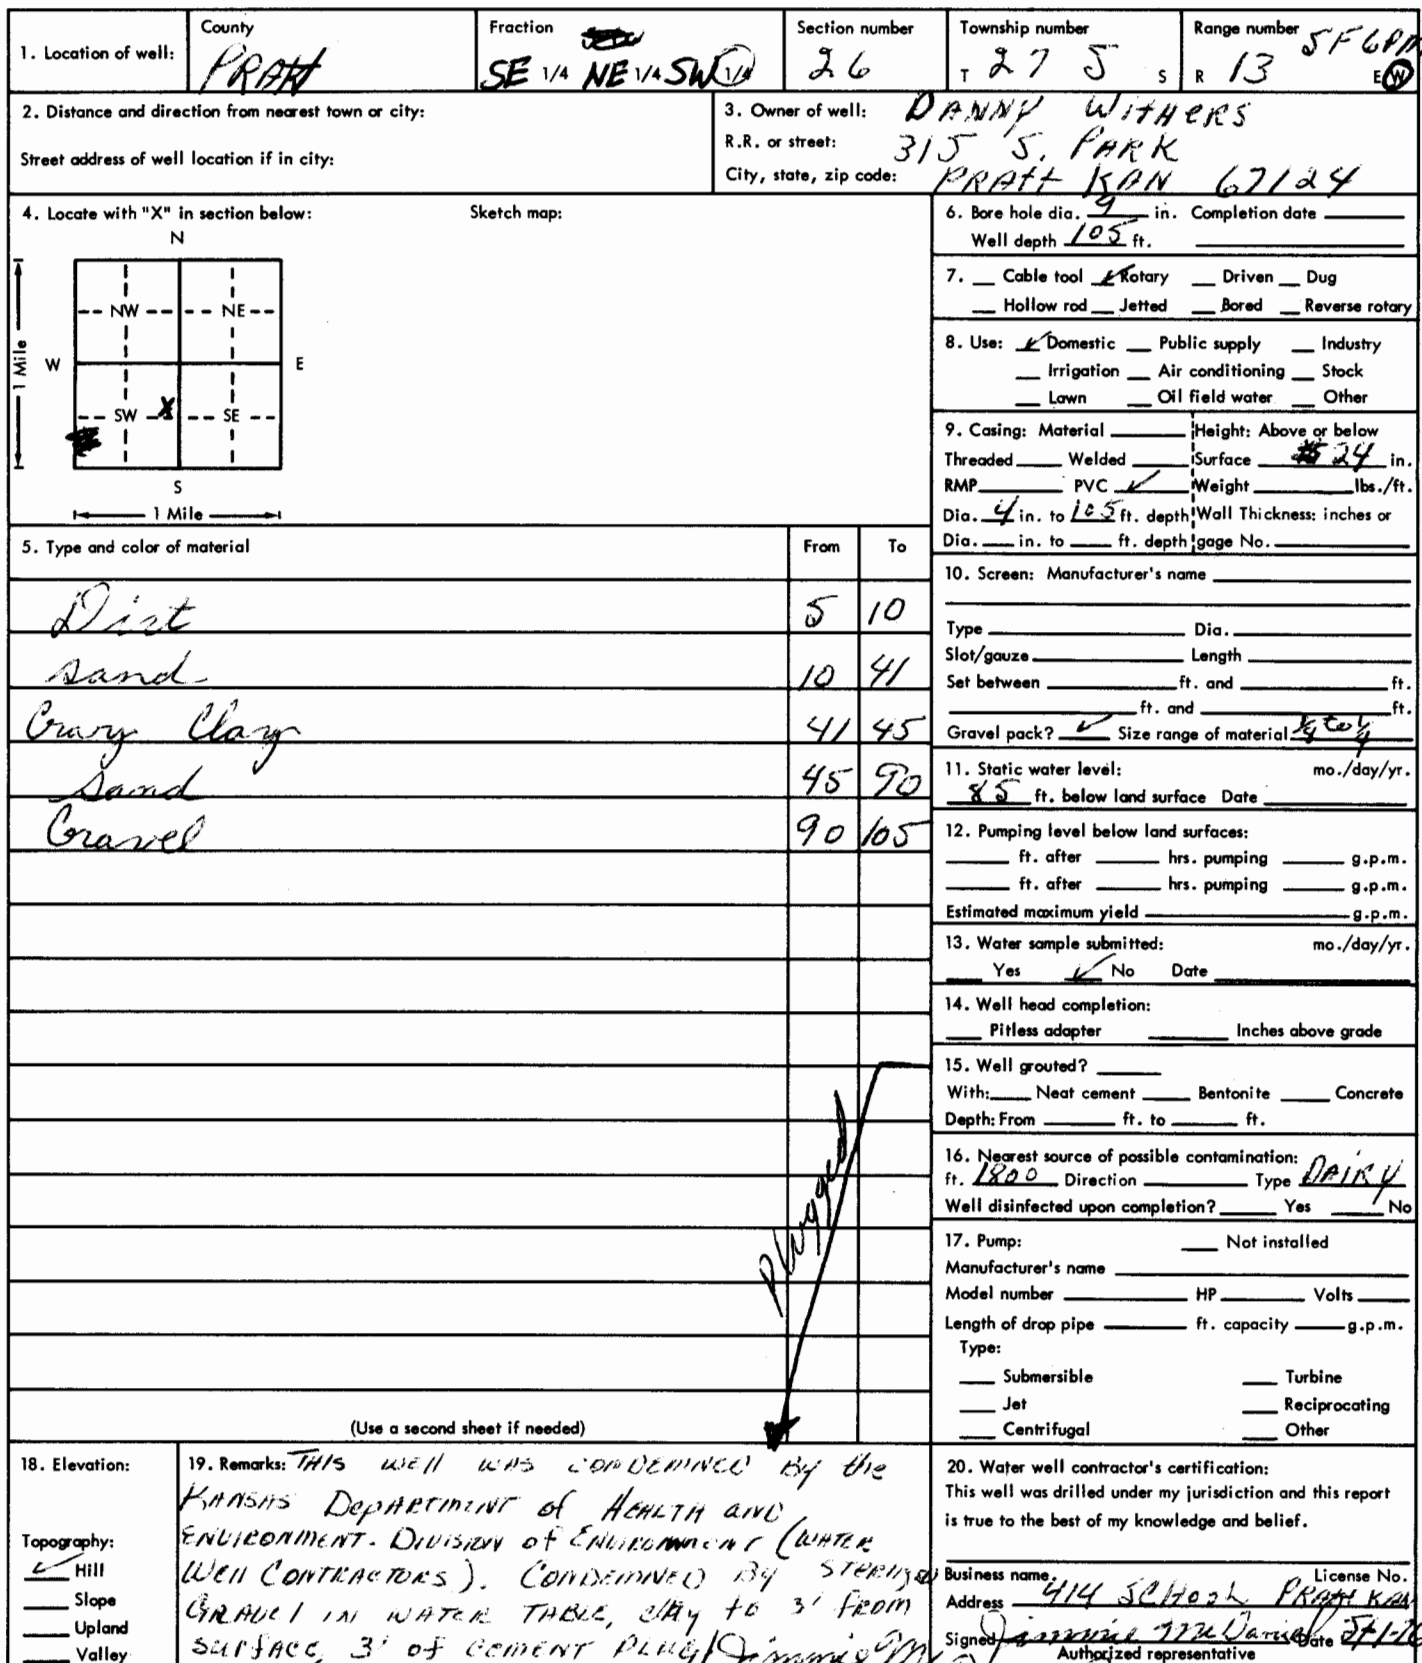 1. Location of well: County PRATT Fraction SE 1/4 NE 1/4 SW 1/4 Section number 26 Township number T 27 S S Range number R 13 E W
2. Distance and direction from nearest town or city:
Street address of well location if in city:
3. Owner of well: DANNY WITHERS
R.R. or street: 315 S. PARK
City, state, zip code: PRATT KAN 67124
4. Locate with "X" in section below: Sketch map:
N
NW NE
W E
1 Mile
SW X SE
S
1 Mile
5. Type and color of material From To
Dirt 5 10
sand 10 41
Gravy Clay 41 45
Sand 45 90
Gravel 90 105
Plugged
(Use a second sheet if needed)
6. Bore hole dia. 9 in. Completion date
Well depth 105 ft.
7. Cable tool ✓ Rotary Driven Dug
Hollow rod Jetted Bored Reverse rotary
8. Use: ✓ Domestic Public supply Industry
Irrigation Air conditioning Stock
Lawn Oil field water Other
9. Casing: Material Height: Above or below
Threaded Welded Surface 24 in.
RMP PVC ✓ Weight lbs./ft.
Dia. 4 in. to 105 ft. depth Wall Thickness: inches or
Dia. in. to ft. depth gage No.
10. Screen: Manufacturer's name
Type Dia.
Slot/gauze Length
Set between ft. and ft.
ft. and ft.
Gravel pack? ✓ Size range of material to 1/4
11. Static water level: mo./day/yr.
85 ft. below land surface Date
12. Pumping level below land surfaces:
ft. after hrs. pumping g.p.m.
ft. after hrs. pumping g.p.m.
Estimated maximum yield g.p.m.
13. Water sample submitted: mo./day/yr.
Yes ✓ No Date
14. Well head completion:
Pitless adapter Inches above grade
15. Well grouted?
With: Neat cement Bentonite Concrete
Depth: From ft. to ft.
16. Nearest source of possible contamination:
ft. 1800 Direction Type DAIRY
Well disinfected upon completion? Yes No
17. Pump: Not installed
Manufacturer's name
Model number HP Volts
Length of drop pipe ft. capacity g.p.m.
Type:
Submersible Turbine
Jet Reciprocating
Centrifugal Other
18. Elevation:
Topography:
✓ Hill
Slope
Upland
Valley
19. Remarks: THIS WELL WAS CONDEMNED By the
KANSAS DEPARTMENT of HEALTH AND
ENVIRONMENT. DIVISION of ENVIRONMENT (WATER
WELL CONTRACTORS). CONDEMNED By
GRAVEL IN WATER TABLE, CLAY to 3' FROM
SURFACE, 3' OF CEMENT PLUG
20. Water well contractor's certification:
This well was drilled under my jurisdiction and this report
is true to the best of my knowledge and belief.
Business name License No.
Address 414 PRATT KAN
Signed Jimmie McDaniel Date
Authorized representative